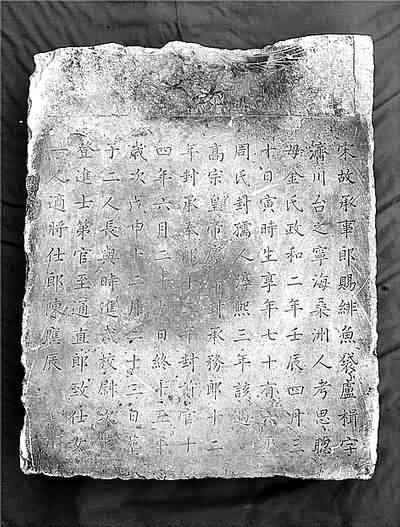 宋故承事郎賜緋漁袋盧楫字
濟川台之寧海桑洲人考思聰
母金氏政和二年壬辰四月三
十日寅時生享年七十有六
周氏封孺人淳熙三年該遇
高宗皇帝慶封承務郎十二
年封承奉郎十年封官十
四年六月二十日終于
歲次戊申十二月十三日
子二人長與時進武校尉次
登進士第官至通直郎致仕女
一人適將仕郎陳應辰